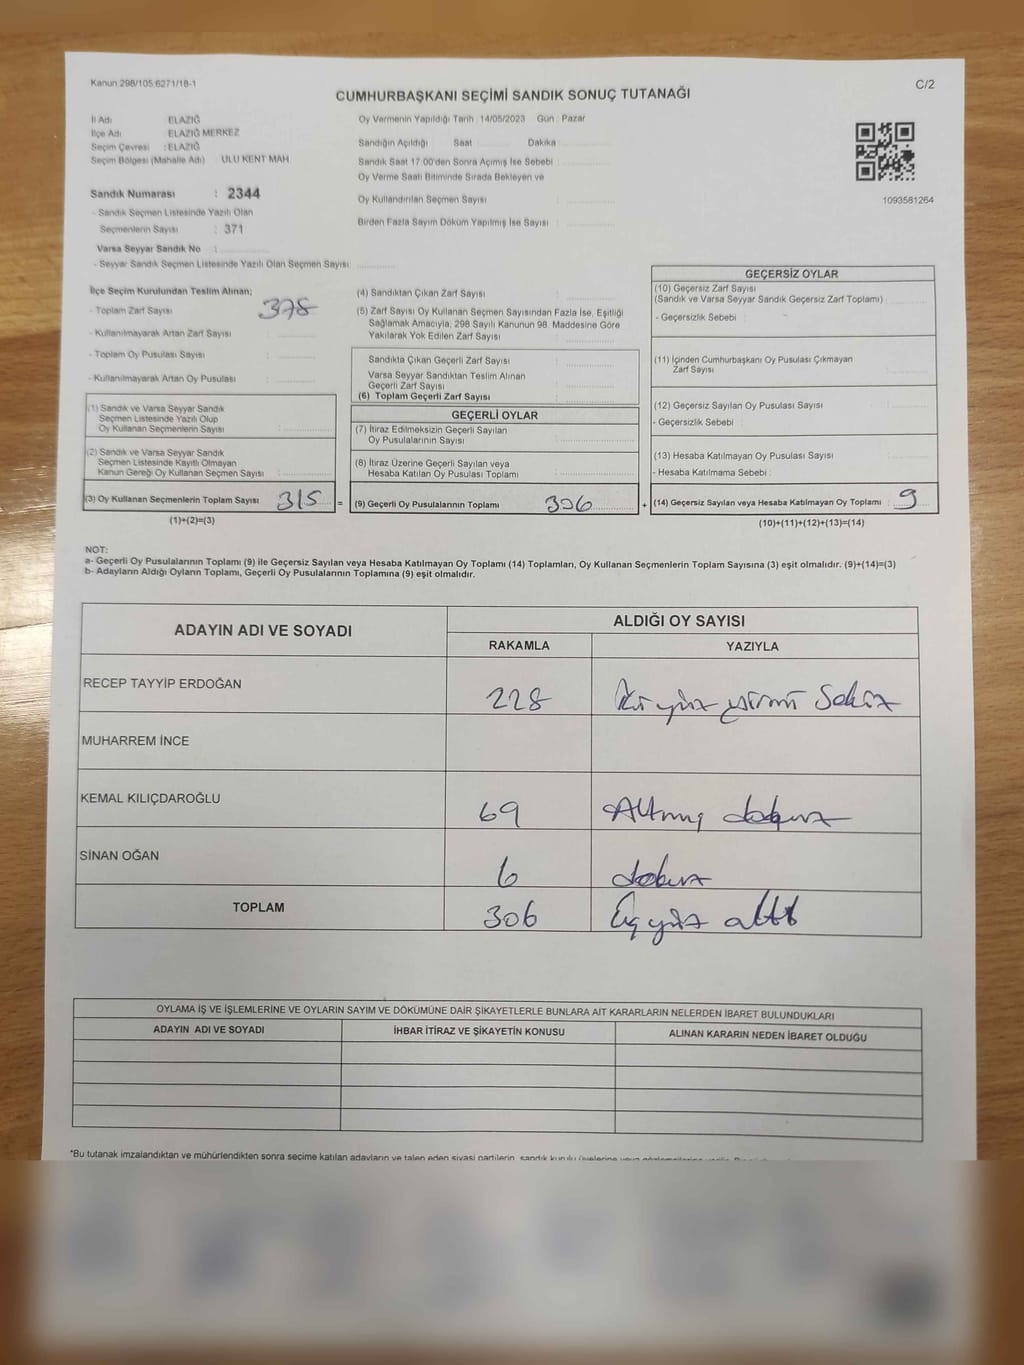 Kanun 298/105 6271/18-1
C/2
CUMHURBAŞKANI SEÇİMİ SANDIK SONUÇ TUTANAĞI
İl Adı ELAZIĞ
İlçe Adı : ELAZIĞ MERKEZ
Seçim Çevresi : ELAZIĞ
Seçim Bölgesi (Mahalle Adı) : ULU KENT MAH.
Sandık Numarası : 2344
- Sandık Seçmen Listesinde Yazılı Olan
Seçmenlerin Sayısı : 371
Varsa Seyyar Sandık No :
- Seyyar Sandık Seçmen Listesinde Yazılı Olan Seçmen Sayısı:
Oy Vermenin Yapıldığı Tarih : 14/05/2023 Gün : Pazar
Sandığın Açıldığı Saat Dakika
Sandık Saat 17:00'den Sonra Açımış İse Sebebi :
Oy Verme Saati Bitiminde Sırada Bekleyen ve
Oy Kullandırılan Seçmen Sayısı :
Birden Fazla Sayım Döküm Yapılmış İse Sayısı :
1093581264
İlçe Seçim Kurulundan Teslim Alınan;
- Toplam Zarf Sayısı 378
- Kullanılmayarak Artan Zarf Sayısı :
- Toplam Oy Pusulası Sayısı :
- Kullanılmayarak Artan Oy Pusulası :
(1) Sandık ve Varsa Seyyar Sandık
Seçmen Listesinde Yazılı Olup
Oy Kullanan Seçmenlerin Sayısı :
(2) Sandık ve Varsa Seyyar Sandık
Seçmen Listesinde Kayıtlı Olmayan
Kanun Gereği Oy Kullanan Seçmen Sayısı :
(3) Oy Kullanan Seçmenlerin Toplam Sayısı : 315 =
(1)+(2)=(3)
(4) Sandıktan Çıkan Zarf Sayısı :
(5) Zarf Sayısı Oy Kullanan Seçmen Sayısından Fazla İse, Eşitliği
Sağlamak Amacıyla, 298 Sayılı Kanunun 98. Maddesine Göre
Yakılarak Yok Edilen Zarf Sayısı :
Sandıkta Çıkan Geçerli Zarf Sayısı :
Varsa Seyyar Sandıktan Teslim Alınan
Geçerli Zarf Sayısı :
(6) Toplam Geçerli Zarf Sayısı :
GEÇERLİ OYLAR
(7) İtiraz Edilmeksizin Geçerli Sayılan
Oy Pusulalarının Sayısı :
(8) İtiraz Üzerine Geçerli Sayılan veya
Hesaba Katılan Oy Pusulası Toplamı :
(9) Geçerli Oy Pusulalarının Toplamı 306 +
GEÇERSİZ OYLAR
(10) Geçersiz Zarf Sayısı
(Sandık ve Varsa Seyyar Sandık Geçersiz Zarf Toplamı) :
- Geçersizlik Sebebi :
(11) İçinden Cumhurbaşkanı Oy Pusulası Çıkmayan
Zarf Sayısı :
(12) Geçersiz Sayılan Oy Pusulası Sayısı :
- Geçersizlik Sebebi :
(13) Hesaba Katılmayan Oy Pusulası Sayısı :
- Hesaba Katılmama Sebebi :
(14) Geçersiz Sayılan veya Hesaba Katılmayan Oy Toplamı : 9
(10)+(11)+(12)+(13)=(14)
NOT:
a- Geçerli Oy Pusulalarının Toplamı (9) ile Geçersiz Sayılan veya Hesaba Katılmayan Oy Toplamı (14) Toplamları, Oy Kullanan Seçmenlerin Toplam Sayısına (3) eşit olmalıdır. (9)+(14)=(3)
b- Adayların Aldığı Oyların Toplamı, Geçerli Oy Pusulalarının Toplamına (9) eşit olmalıdır.
ADAYIN ADI VE SOYADI ALDIĞI OY SAYISI
RAKAMLA YAZIYLA
RECEP TAYYİP ERDOĞAN 228 İki yüz yirmi Sekiz
MUHARREM İNCE
KEMAL KILIÇDAROĞLU 69 Altmış dokuz
SİNAN OĞAN 6 dokuz
TOPLAM 306 Üçyüz altı
OYLAMA İŞ VE İŞLEMLERİNE VE OYLARIN SAYIM VE DÖKÜMÜNE DAİR ŞİKAYETLERLE BUNLARA AİT KARARLARIN NELERDEN İBARET BULUNDUKLARI
ADAYIN ADI VE SOYADI İHBAR İTİRAZ VE ŞİKAYETİN KONUSU ALINAN KARARIN NEDEN İBARET OLDUĞU
*Bu tutanak imzalandıktan ve mühürlendikten sonra seçime katılan adayların ve talep eden siyasi partilerin, sandık kurulu üyelerine